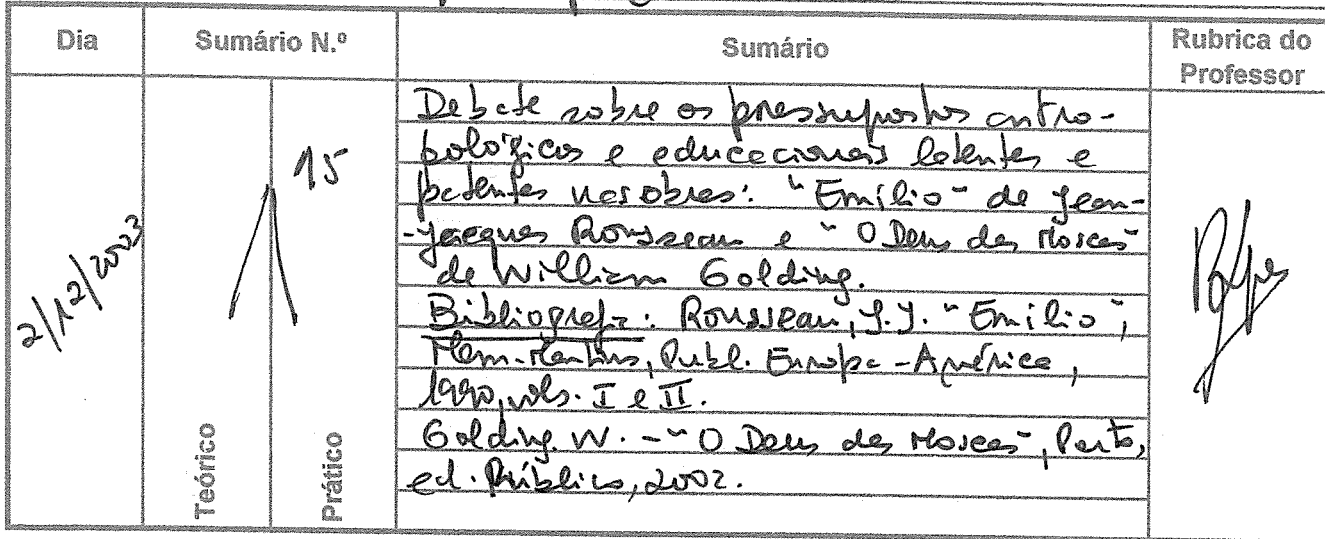 Dia
Sumário N.º
Sumário
Rubrica do
Professor
2/12/2003
15
Teórico
Prático
Debate sobre os pressupostos antro-
pológicos e educacionais latentes e
patentes nas obras: "Emílio" de Jean-
-Jacques Rousseau e "O Deus das Moscas"
de William Golding.
Bibliografia: Rousseau, J.J. "Emílio",
Mem-Martins, Publ. Europa-América,
1990, vols. I e II.
Golding. W. - "O Deus das Moscas", Porto,
ed. Público, 2002.